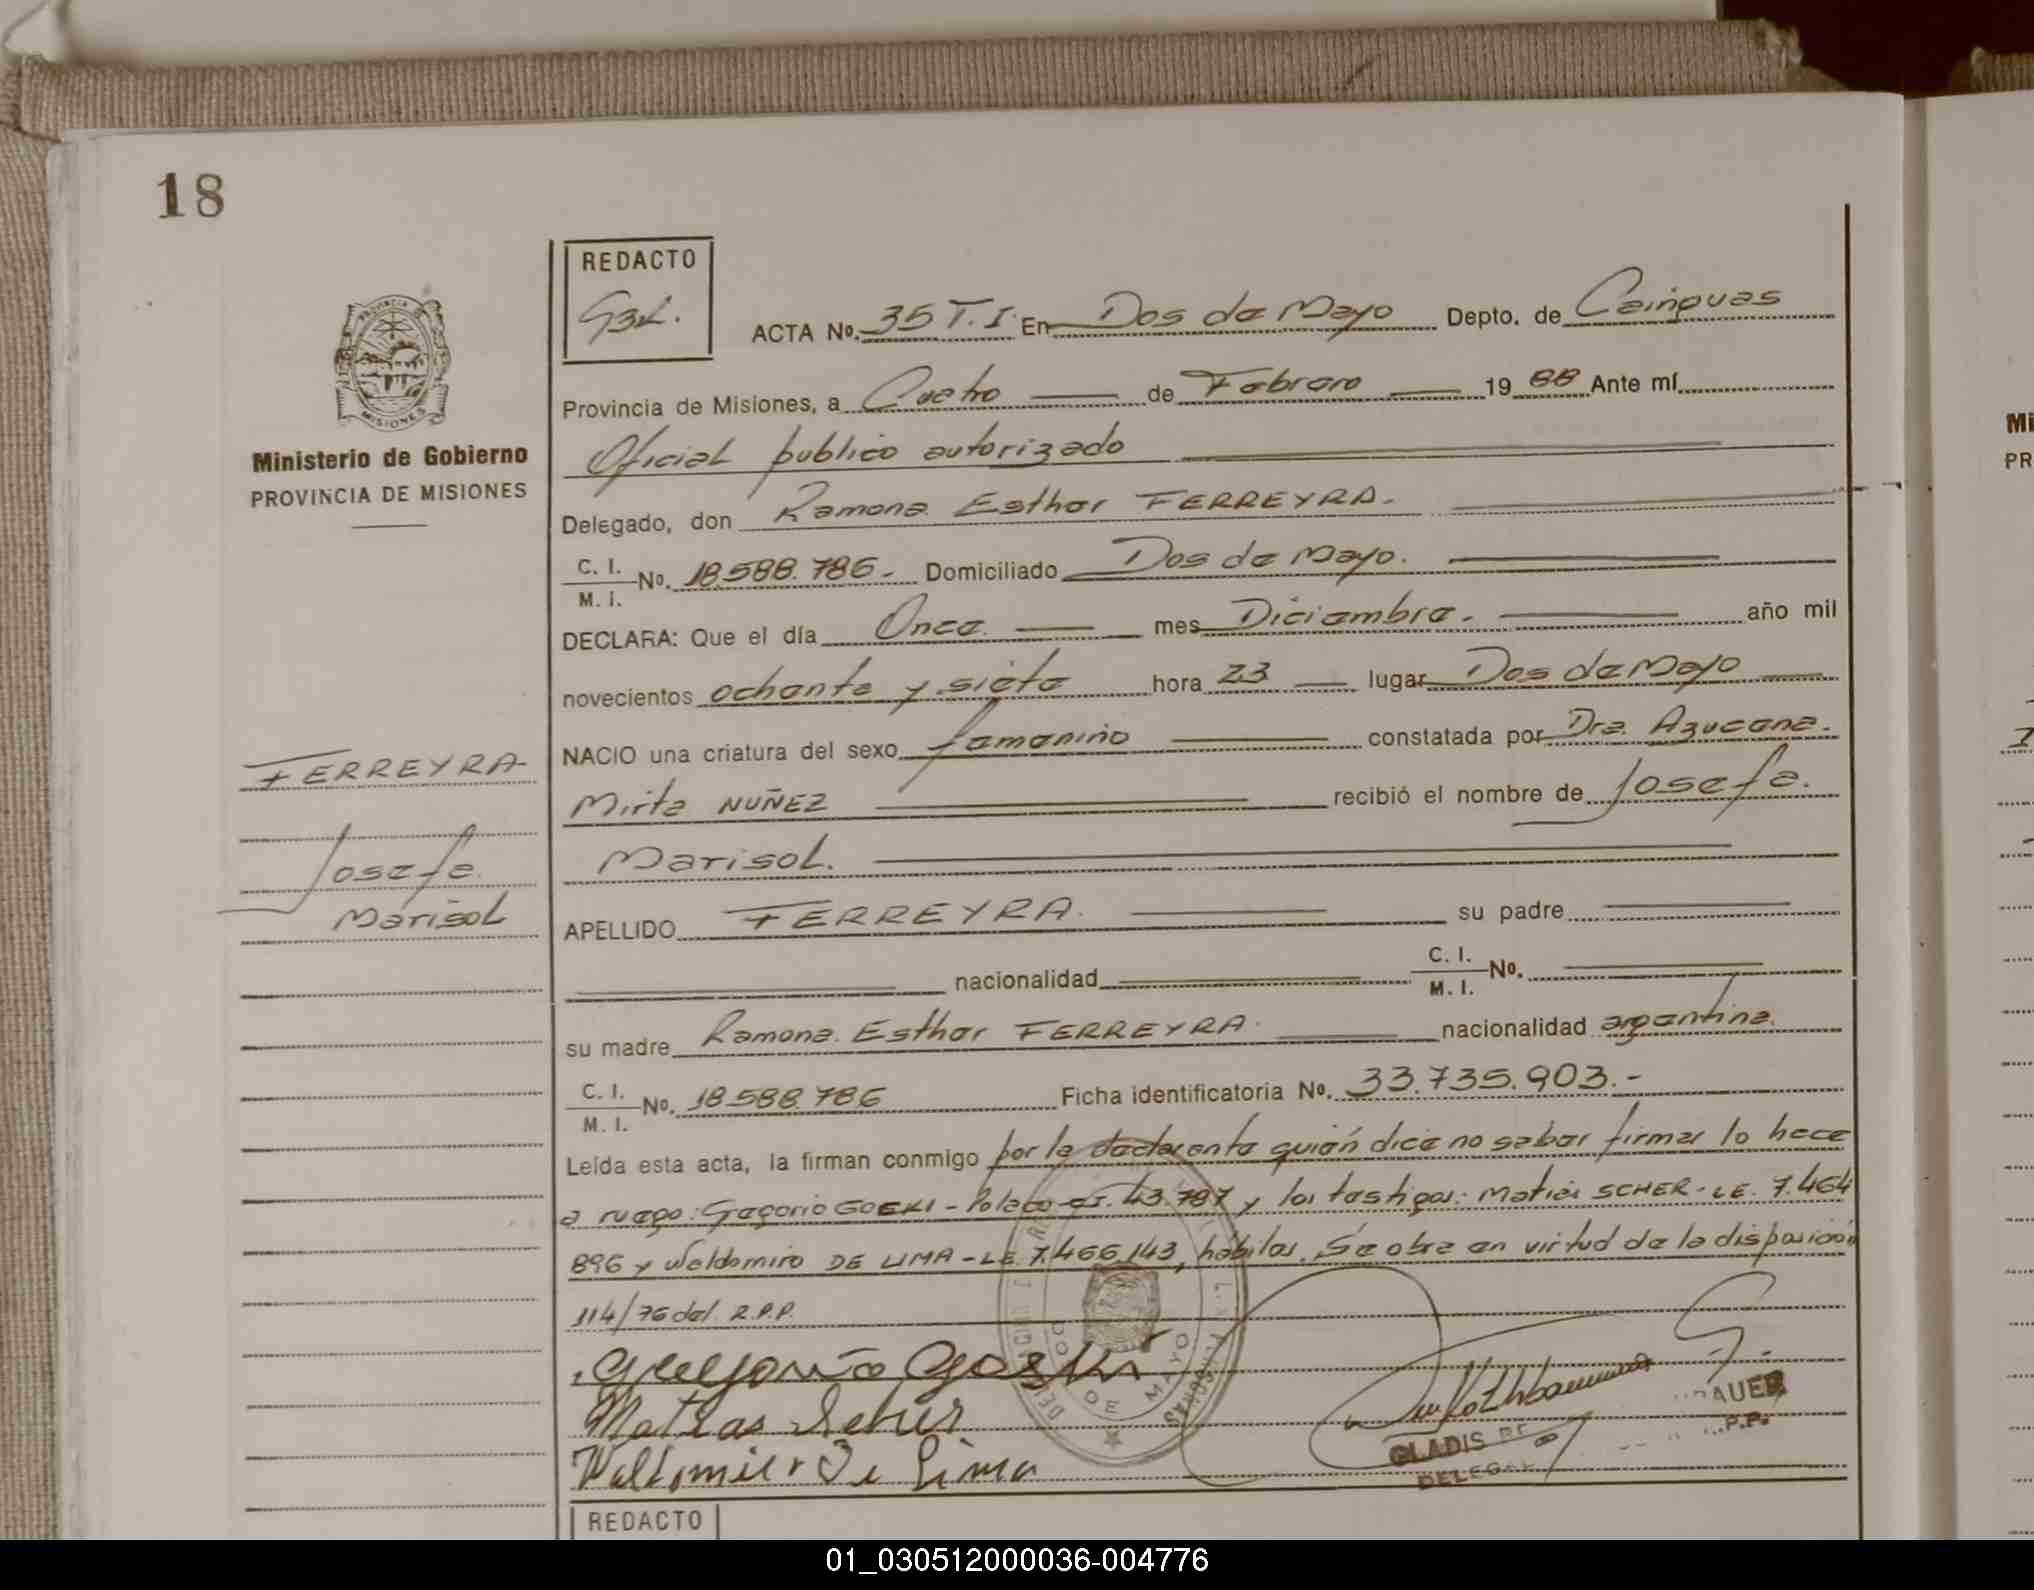 18
REDACTO
ACTA No. 35 T.I. En Dos de Mayo Depto. de Cainguas
Provincia de Misiones, a Cuatro de Febrero 1988 Ante mí
Oficial publico autorizado
Ministerio de Gobierno
PROVINCIA DE MISIONES
Delegado, don Ramona Esther FERREYRA.
C. I.
M. I. No. 18.588.786.- Domiciliado Dos de Mayo.
DECLARA: Que el día Once mes Diciembre. año mil
novecientos ochenta y siete hora 23 lugar Dos de Mayo
NACIO una criatura del sexo femenino constatada por Dra. Azucena
Mirta NUÑEZ recibió el nombre de Josefa
Marisol.
FERREYRA
Josefa
Marisol
APELLIDO FERREYRA. su padre
nacionalidad C. I.
M. I. No.
su madre Ramona Esther FERREYRA nacionalidad argentina.
C. I.
M. I. No. 18.588.786 Ficha identificatoria No. 33.735.903.-
Leída esta acta, la firman conmigo por la declarante quién dice no saber firmar lo hace
a ruego: Gregorio GOEKI - Polaco CI. 43.787 y los testigos: Matias SCHER - LE. 7.464
896 y Waldomiro DE LIMA - LE. 7.466.143, hábiles. Se obra en virtud de la disposición
114/76 del R.P.P.
Matias Scher
Waldomiro De Lima
DOS DE MAYO
GLADIS
REDACTO
01_030512000036-004776